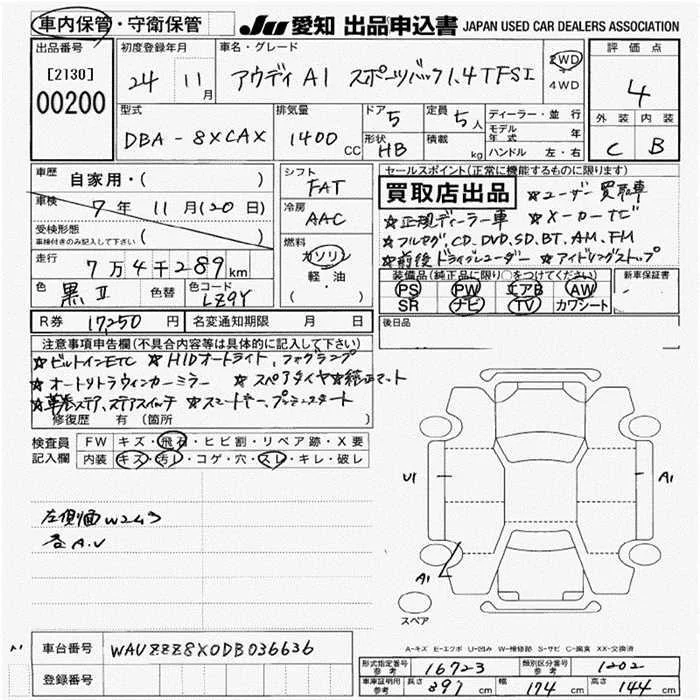 車内保管・守衛保管 JU 愛知 出品申込書 JAPAN USED CAR DEALERS ASSOCIATION
出品番号 初度登録年月 車名・グレード 評価点
[2130] 24 11月 アウディ A1 スポーツバック1.4TFSI 2WD・4WD 4
00200 外装 内装
型式 排気量 ドア 5 定員 5人 ディーラー・並行 C B
DBA-8XCAX 1400CC 形状 HB 積載 kg モデル年式 年
ハンドル 左・右
車歴 自家用・( ) シフト FAT セールスポイント(正常に機能するものに限ります)
車検 7年11月(20日) 冷房 AAC 買取店出品 ☆ユーザー買取車
☆正規ディーラー車 ☆メーカーナビ
受検形態 車検付きのみ記入して下さい ( ) 燃料 ガソリン ☆フルセグ,CD,DVD,SD,BT,AM,FM
軽・油 ☆前後ドライブレコーダー ☆アイドリングストップ
走行 7万4千289km ( ) 装備品(純正品に限り○をつけてください) 新車保証書
色 黒II 色替 色コード LZ9Y PS PW エアB AW
SR ナビ TV カワシート
R券 17,250円 名変通知期限 月 日 後日品
注意事項申告欄(不具合内容等は具体的に記入して下さい)
☆ビルトインETC ☆HIDオートライト,フォグランプ
☆オートリトラウィンカーミラー ☆スペアタイヤ☆純正マット
☆革巻ステア,ステアスイッチ ☆スマートキー,プッシュスタート
修復歴 有(箇所 )
検査員記入欄 FW キズ・飛石・ヒビ割・リペア跡・X要
内装 キズ・汚レ・コゲ・穴・スレ・キレ・破レ
U1 A1
左側面W2ムラ
各A.U
A1
スペア
A-キズ E-エクボ U-凹み W-補修跡 S-サビ C-腐食 XX-交換済
車台番号 WAUZZZ8X0DB036636
登録番号
形式指定番号 参考 16723 類別区分番号 参考 1202
車庫証明用 参考 長さ 397cm 幅 174cm 高さ 144cm